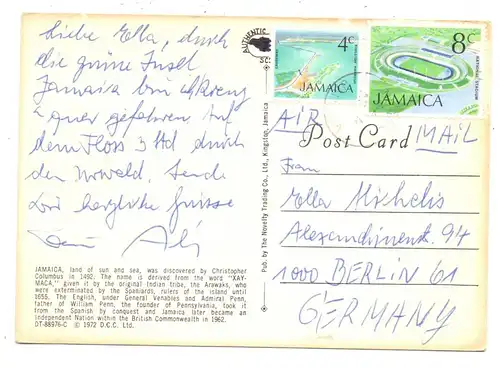 Liebe Ella, durch
die grüne Insel
Jamaica bin ich kreuz
u quer gefahren. Auf
dem Floss 3 Std durch
den Urwald. Sende
Dir herzliche Grüsse
Dein
JAMAICA, land of sun and sea, was discovered by Christopher
Columbus in 1492. The name is derived from the word "XAY-
MACA," given it by the original Indian tribe, the Arawaks, who
were exterminated by the Spaniards, rulers of the island until
1655. The English, under General Venables and Admiral Penn,
father of William Penn, the founder of Pennsylvania, took it
from the Spanish by conquest and Jamaica later became an
Independent Nation within the British Commonwealth in 1962.
DT-88976-C © 1972 D.C. Ltd.
Pub. by The Novelty Trading Co., Ltd., Kingston, Jamaica
AUTHENTIC
4c
JAMAICA
8c
NATIONAL STADIUM
JAMAICA
AIR MAIL
Post Card
Frau
Ella Michelis
Alexandrinenst. 94
1000 BERLIN 61
GERMANY